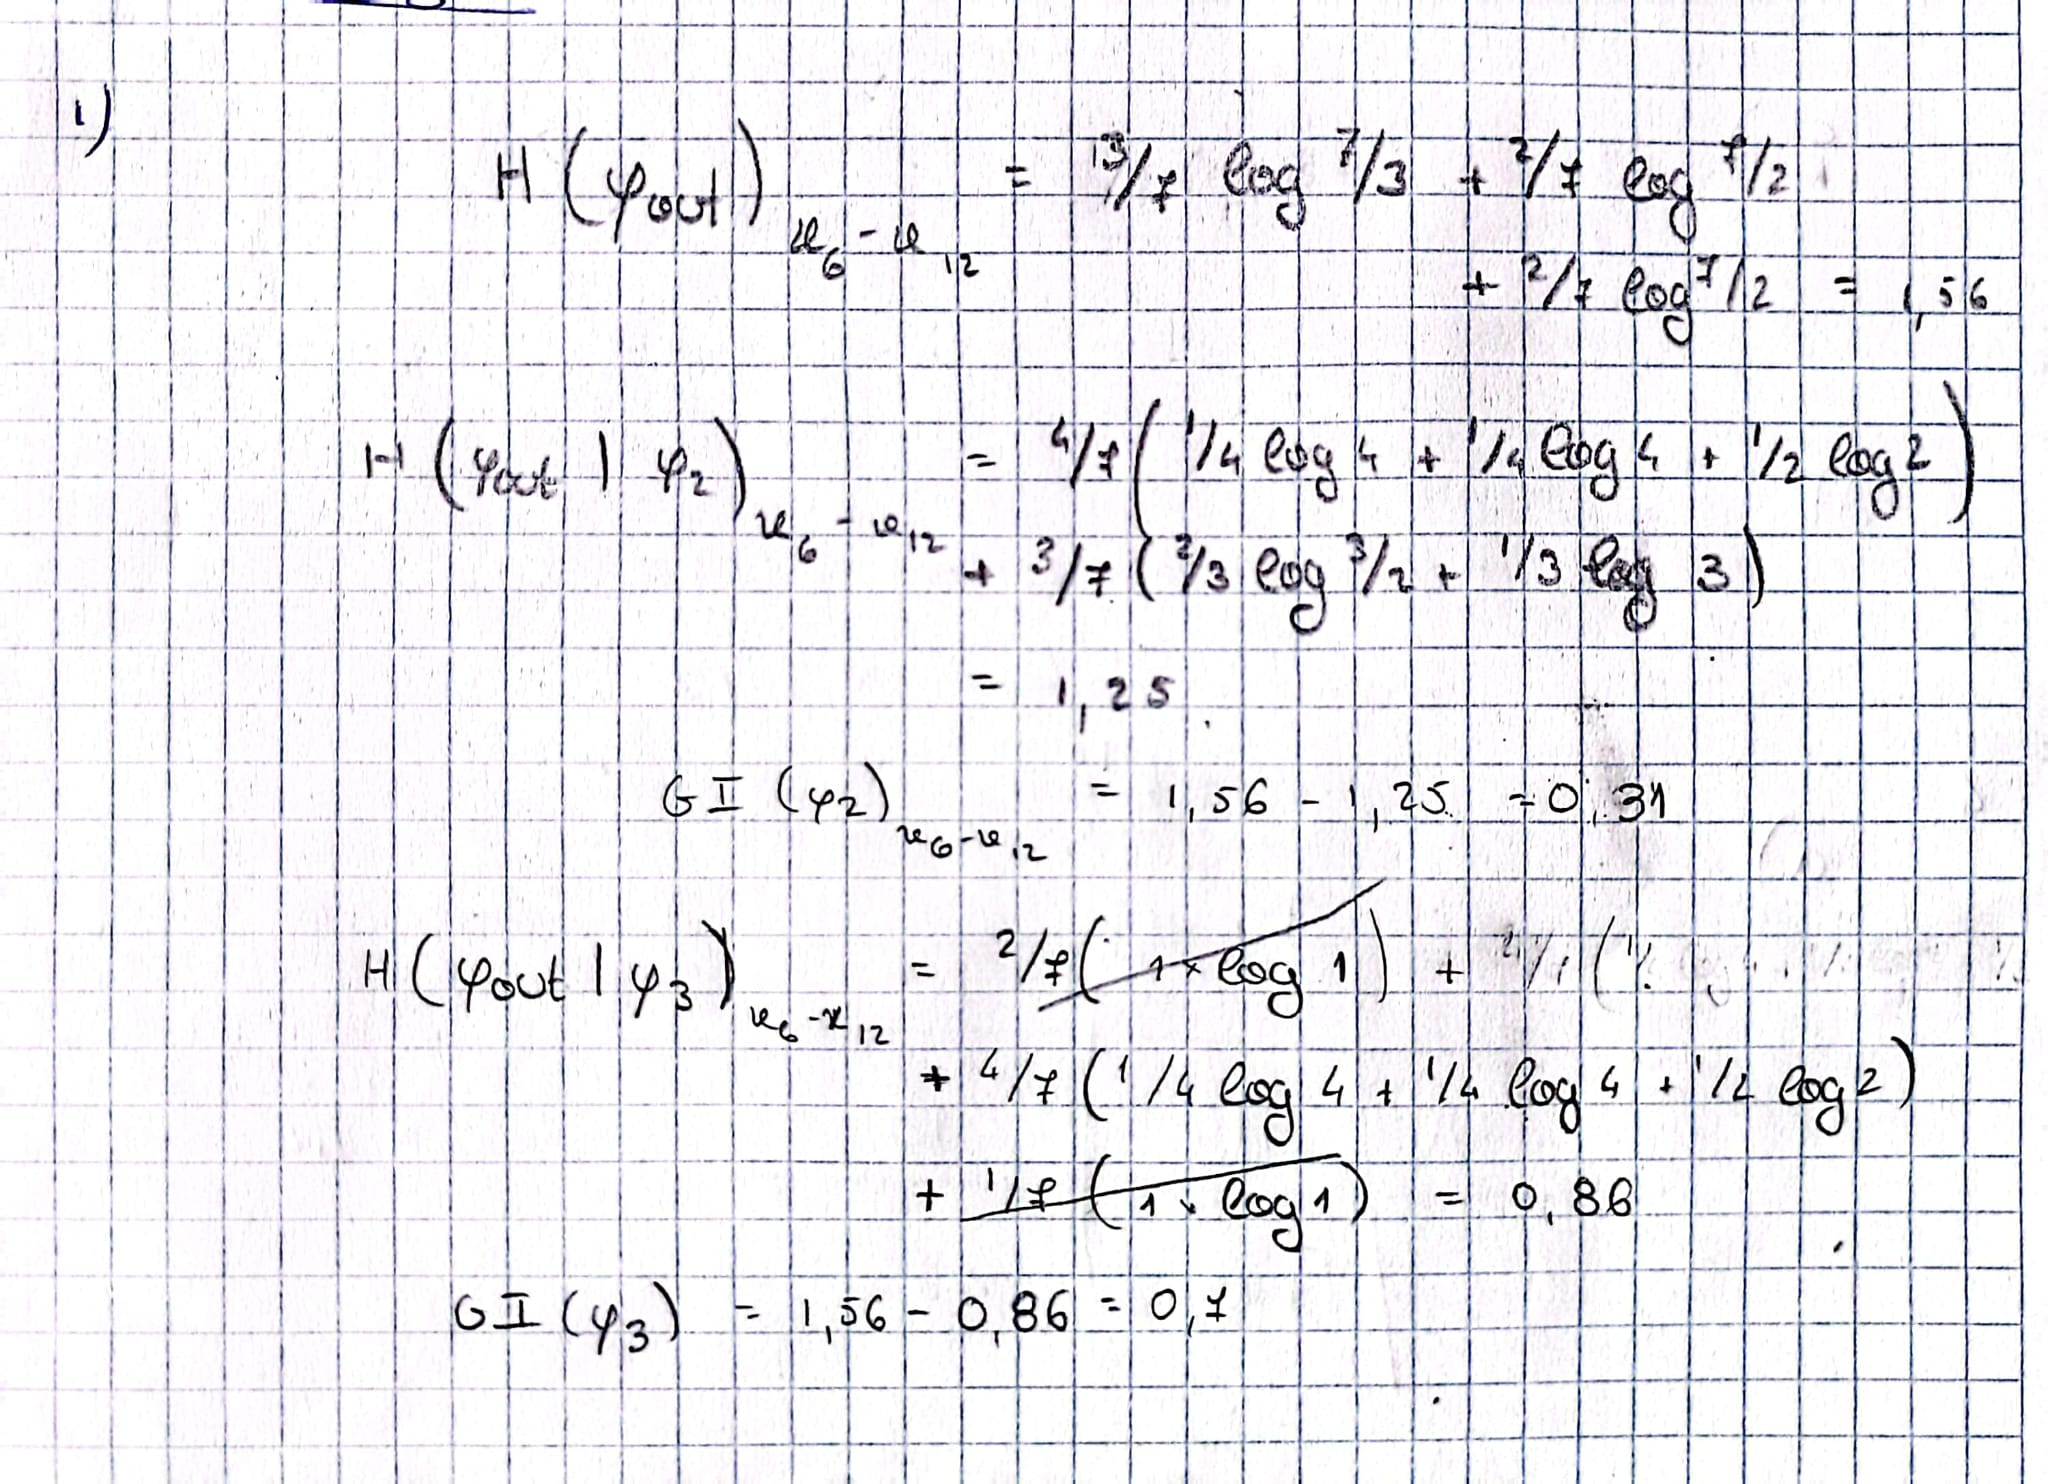 1)
H(φout) x6-x12 = 3/7 log 7/3 + 2/7 log 7/2
+ 2/7 log 7/2 = 1,56
H(φout | φ2) x6-x12 = 4/7 ( 1/4 log 4 + 1/4 log 4 + 1/2 log 2 )
+ 3/7 ( 2/3 log 3/2 + 1/3 log 3 )
= 1,25
GI (φ2) x6-x12 = 1,56 - 1,25 = 0,31
H(φout | φ3) x6-x12 = 2/7 ( 1 × log 1 ) +
+ 4/7 ( 1/4 log 4 + 1/4 log 4 + 1/2 log 2 )
+ 1/7 ( 1 × log 1 ) = 0,86
GI (φ3) = 1,56 - 0,86 = 0,7